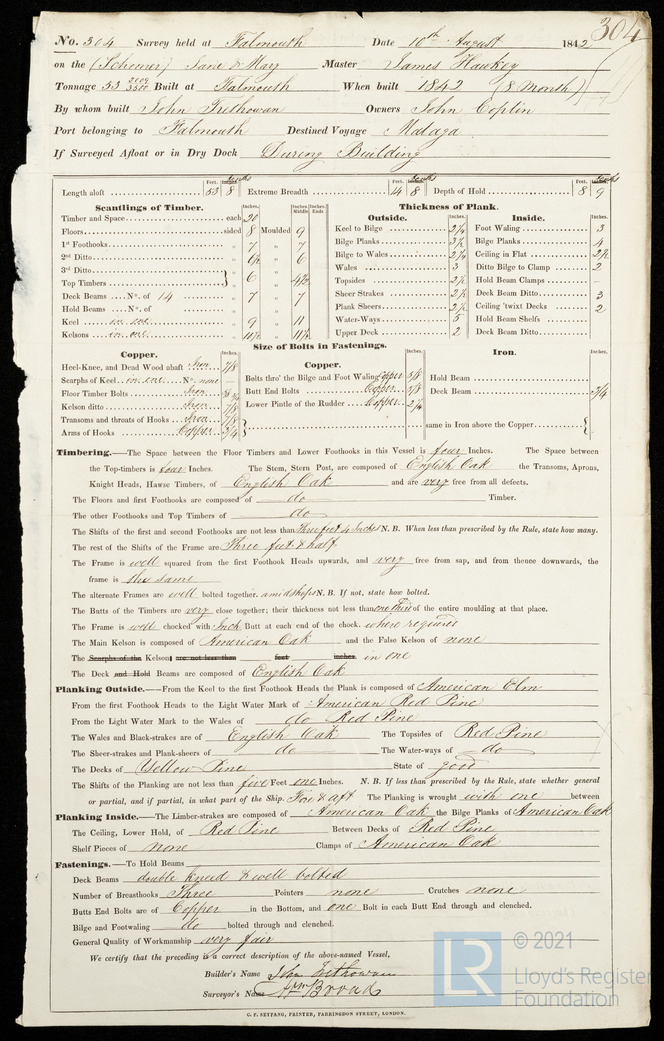 304
No. 304 Survey held at Falmouth Date 10th August 1842
on the (Schooner) Jane & Mary Master James Hawkey
Tonnage 53 2009/3500 Built at Falmouth When built 1842 (8 Month)
By whom built John Trethowan Owners John Coplin
Port belonging to Falmouth Destined Voyage Malaga
If Surveyed Afloat or in Dry Dock During Building
Feet. Feet. Feet.
Length aloft 53 8 Extreme Breadth 14 8 Depth of Hold 8 9
Scantlings of Timber.
Inches. Inches. Middle Inches. Ends
Timber and Space each 20
Floors sided 8 Moulded 9
1st Foothooks " 7 " 7
2nd Ditto " 6½ " 6
3rd Ditto
Top Timbers " 6 " 4½
Deck Beams No. of 14 " 7 " 7
Hold Beams No. of " "
Keel in one " 9 " 11
Kelsons in one " 11½ " 11½
Thickness of Plank.
Outside. Inches.
Keel to Bilge 2½
Bilge Planks 3½
Bilge to Wales 2½
Wales 3
Topsides 2½
Sheer Strakes 2½
Plank Sheers 2½
Water-Ways 5
Upper Deck 2
Inside. Inches.
Foot Waling 3
Bilge Planks 4
Ceiling in Flat 2½
Ditto Bilge to Clamp 2
Hold Beam Clamps —
Deck Beam Ditto 3
Ceiling 'twixt Decks 2
Hold Beam Shelfs
Deck Beam Ditto
Size of Bolts in Fastenings.
Copper. Inches.
Heel-Knee, and Dead Wood abaft Iron 7/8
Scarphs of Keel in one No. none —
Floor Timber Bolts Iron
Kelson ditto Iron 7/8
Transoms and throats of Hooks Iron 7/8
Arms of Hooks Copper 3/4
Copper. Inches.
Bolts thro' the Bilge and Foot Waling Copper 5/8
Butt End Bolts Copper 5/8
Lower Pintle of the Rudder Copper 2¼
Iron. Inches.
Hold Beam
Deck Beam 3/4
same in Iron above the Copper
Timbering.—The Space between the Floor Timbers and Lower Foothooks in this Vessel is four Inches. The Space between
the Top-timbers is four Inches. The Stem, Stern Post, are composed of English Oak the Transoms, Aprons,
Knight Heads, Hawse Timbers, of English Oak and are very free from all defects.
The Floors and first Foothooks are composed of do Timber.
The other Foothooks and Top Timbers of do
The Shifts of the first and second Foothooks are not less than Three feet 4 Inches N. B. When less than prescribed by the Rule, state how many.
The rest of the Shifts of the Frame are Three feet & half
The Frame is well squared from the first Foothook Heads upwards, and very free from sap, and from thence downwards, the
frame is the same
The alternate Frames are well bolted together. amidships N. B. If not, state how bolted.
The Butts of the Timbers are very close together; their thickness not less than one third of the entire moulding at that place.
The Frame is well chocked with Such Butt at each end of the chock. where required
The Main Kelson is composed of American Oak and the False Kelson of none
The Scarphs of the Kelson are not less than feet inches. in one
The Deck and Hold Beams are composed of English Oak
Planking Outside.—From the Keel to the first Foothook Heads the Plank is composed of American Elm
From the first Foothook Heads to the Light Water Mark of American Red Pine
From the Light Water Mark to the Wales of do Red Pine
The Wales and Black-strakes are of English Oak The Topsides of Red Pine
The Sheer-strakes and Plank-sheers of do The Water-ways of do
The Decks of Yellow Pine State of good
The Shifts of the Planking are not less than five Feet one Inches. N. B. If less than prescribed by the Rule, state whether general
or partial, and if partial, in what part of the Ship. Fore & aft The Planking is wrought with one between
Planking Inside.—The Limber-strakes are composed of American Oak the Bilge Planks of American Oak
The Ceiling, Lower Hold, of Red Pine Between Decks of Red Pine
Shelf Pieces of none Clamps of American Oak
Fastenings.—To Hold Beams
Deck Beams double kneed & well bolted
Number of Breasthooks Three Pointers none Crutches none
Butts End Bolts are of Copper in the Bottom, and one Bolt in each Butt End through and clenched.
Bilge and Footwaling do bolted through and clenched.
General Quality of Workmanship very fair
We certify that the preceding is a correct description of the above-named Vessel,
Builder's Name John Trethowan
Surveyor's Name Wm Broad
C. F. SEYFANG, PRINTER, FARRINGDON STREET, LONDON.
LR
© 2021
Lloyd's Register
Foundation